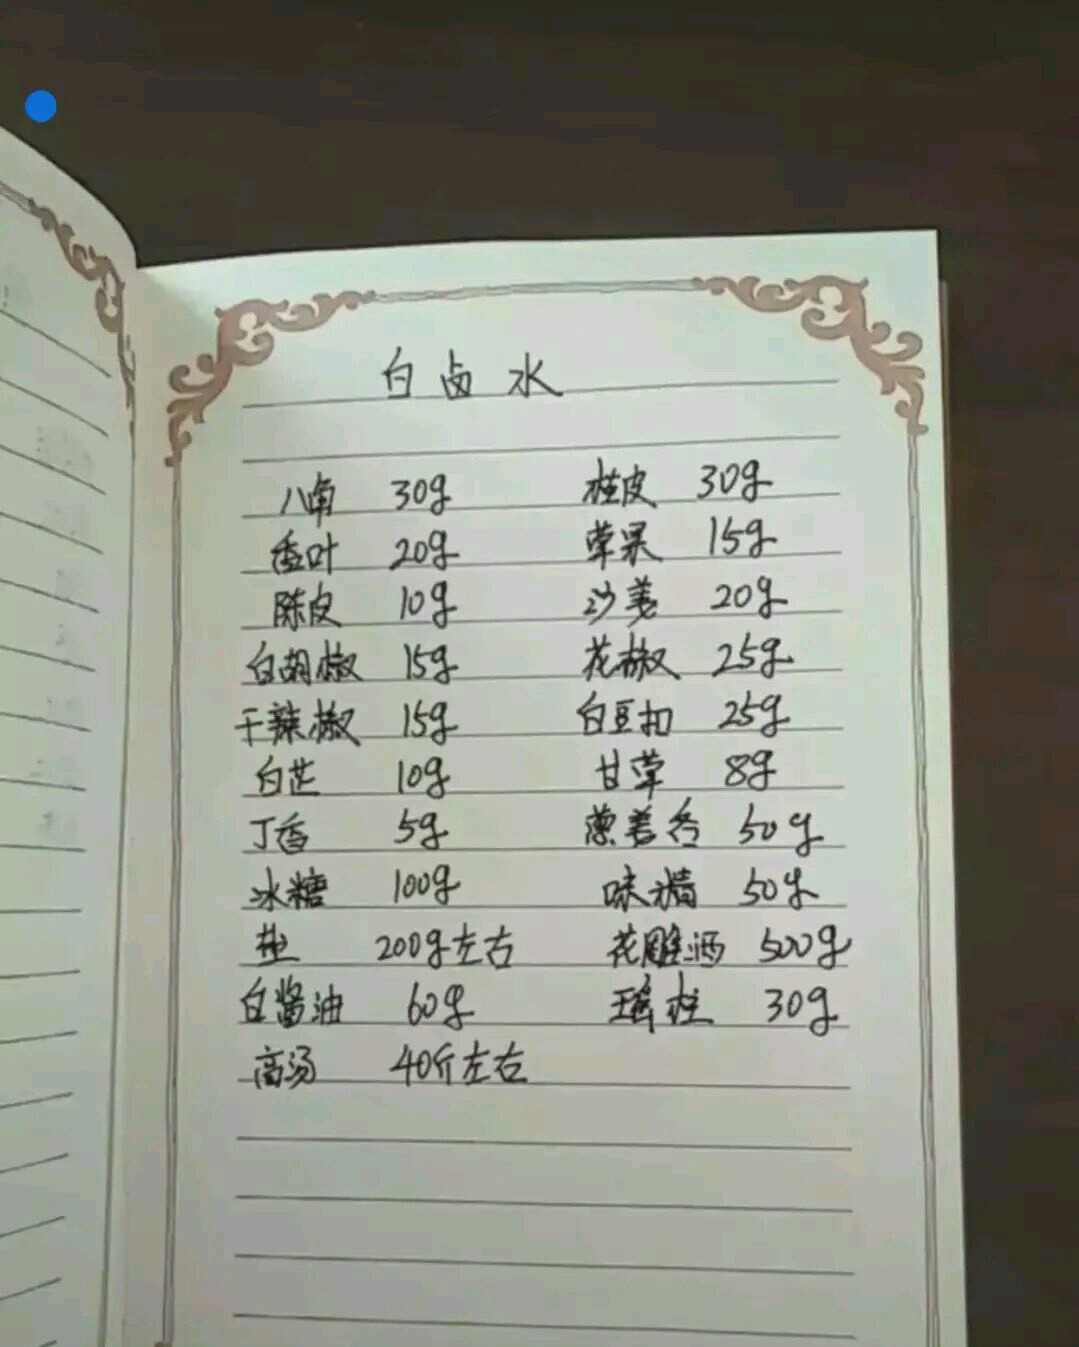 白卤水
八角 30g 桂皮 30g
香叶 20g 草果 15g
陈皮 10g 沙姜 20g
白胡椒 15g 花椒 25g
干辣椒 15g 白豆扣 25g
白芷 10g 甘草 8g
丁香 5g 葱姜各 50g
冰糖 100g 味精 50g
盐 200g左右 花雕酒 500g
白酱油 60g 瑶柱 30g
高汤 40斤左右